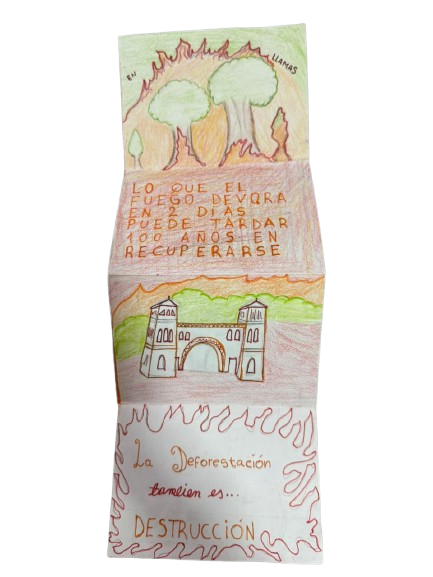 EN LLAMAS
LO QUE EL
FUEGO DEVORA
EN 2 DIAS
PUEDE TARDAR
100 AÑOS EN
RECUPERARSE
La Deforestación
tambien es...
DESTRUCCIÓN